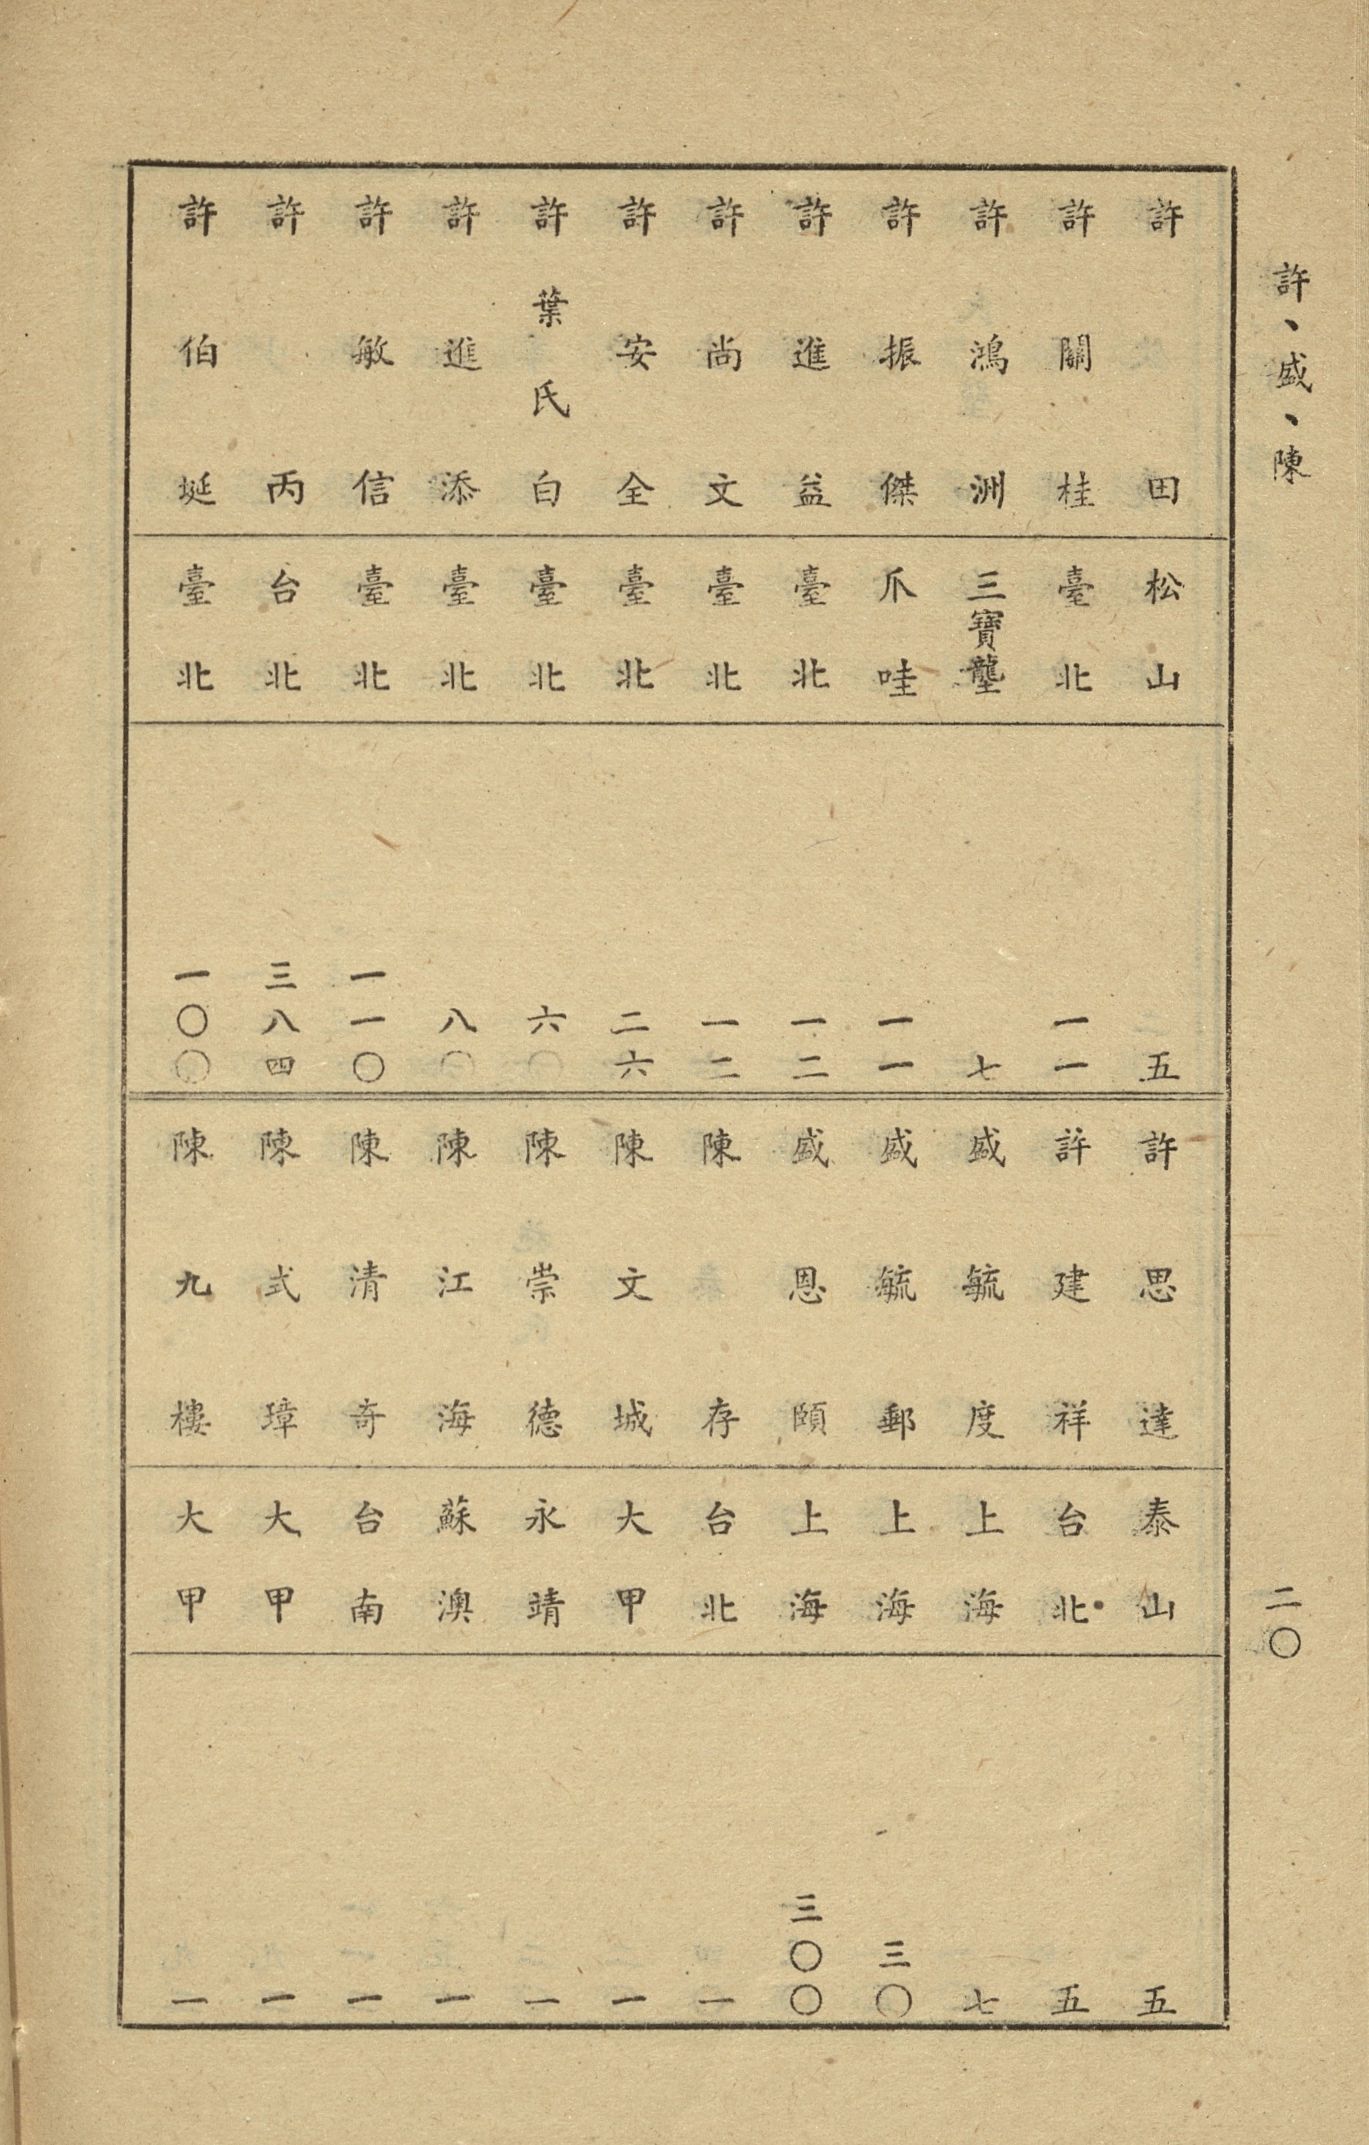 許、盛、陳
二〇
許田 松山 五
許關桂 臺北 一一
許鴻洲 三寶壟 七
許振傑 爪哇 一一
許進益 臺北 一二
許尚文 臺北 一二
許安全 臺北 二六
許葉氏白 臺北 六〇
許進添 臺北 八〇
許敏信 臺北 一一〇
許丙 台北 三八四
許伯埏 臺北 一〇〇
許思達 泰山 五
許建祥 台北 五
盛毓度 上海 七
盛毓郵 上海 三〇
盛恩頤 上海 三〇〇
陳存 台北 一
陳文城 大甲 一
陳崇德 永靖 一
陳江海 蘇澳 一
陳清奇 台南 一
陳式璋 大甲 一
陳九樓 大甲 一